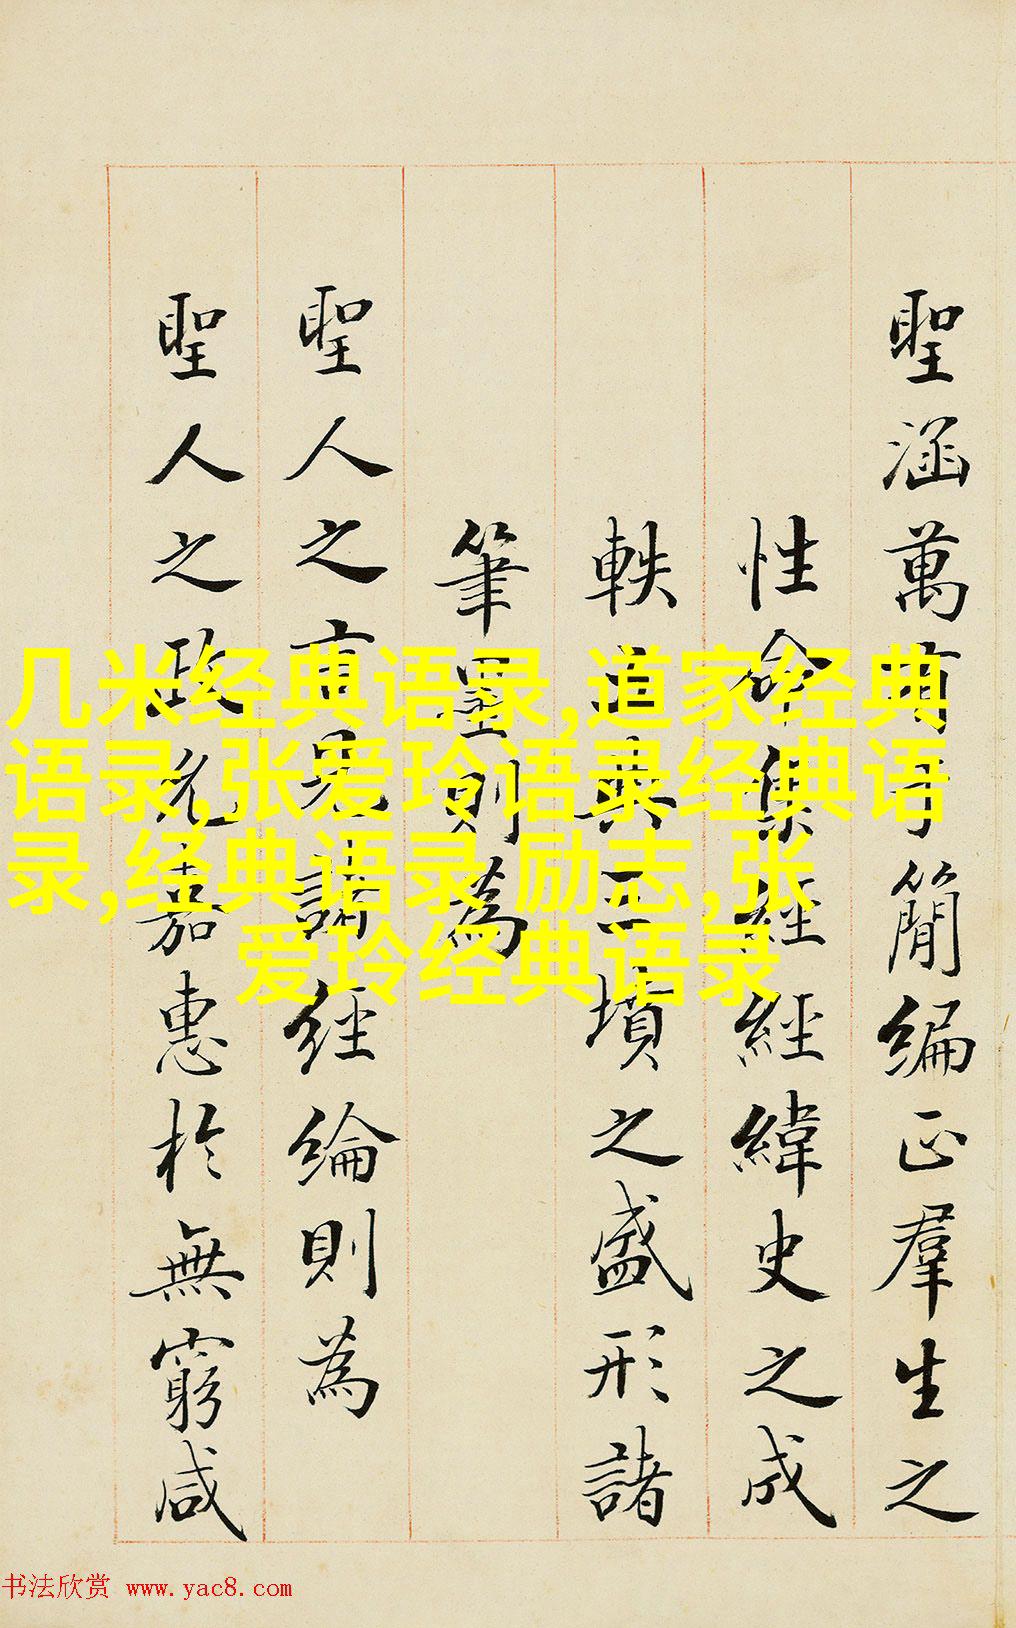 聖涵萬有于簡編正羣生之
性命集經經緯史之成
軼五典三墳之盛形諸
筆墨則為
聖人之言見諸經綸則為
聖人之政允嘉惠於無窮咸
几米经典语录,道家经典
语录,张爱玲语录经典语
录,经典语录 励志,张
爱玲经典语录
书法欣赏 www.yac8.com